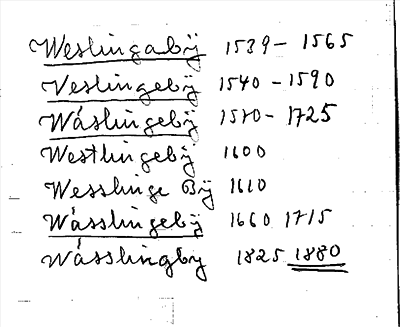 Weslingabÿ 1539 - 1565
Veslingebÿ 1540 - 1590
Wáslingebÿ 1570 - 1725
Westlingebÿ 1600
Wesslinge Bÿ 1610
Wásslingebÿ 1660 1715
Wásslingby 1825 1880